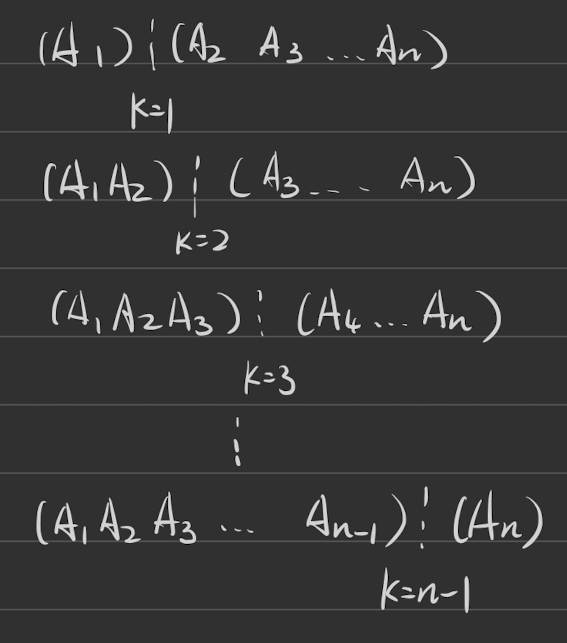 (A₁)¦(A₂ A₃ ... Aₙ)
k=1
(A₁A₂)¦(A₃... Aₙ)
k=2
(A₁A₂A₃)¦(A₄... Aₙ)
k=3
⋮
(A₁A₂A₃ ... Aₙ₋₁)¦(Aₙ)
k=n-1